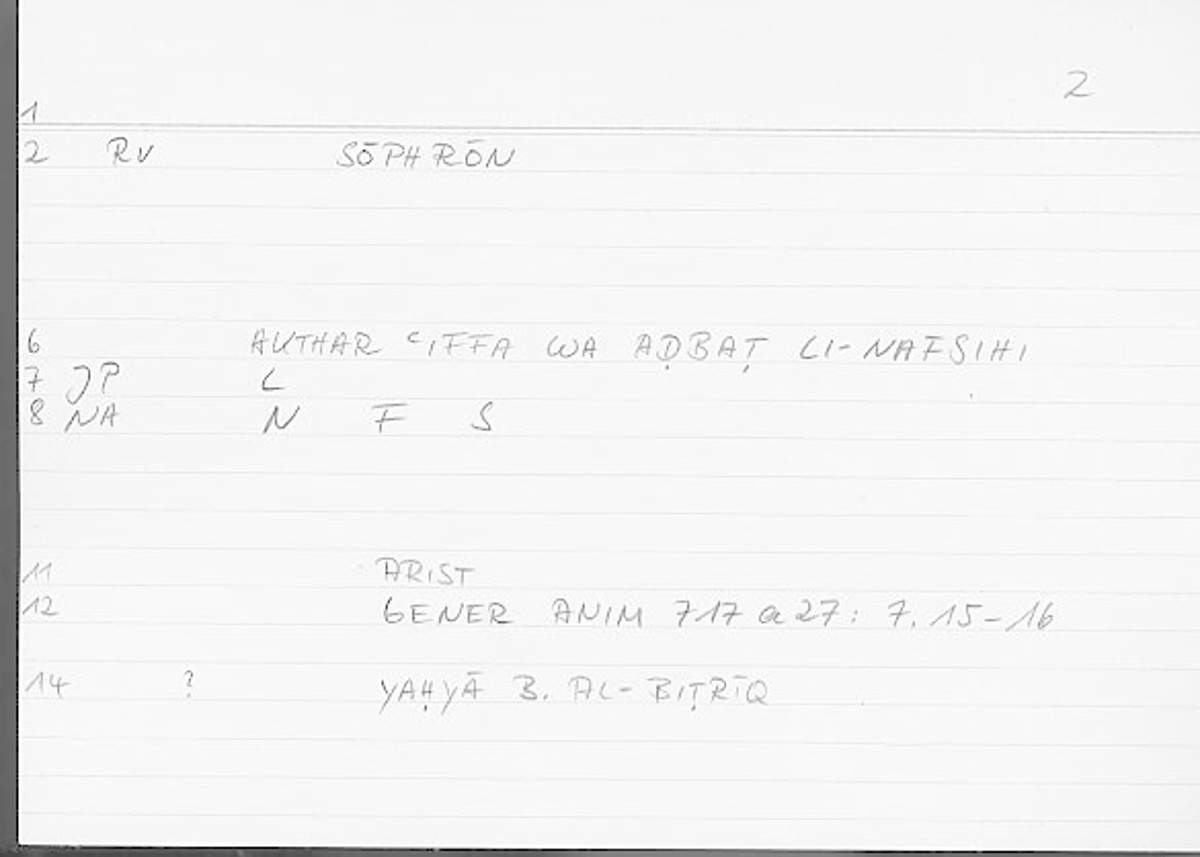 2
1
2 RV SŌPHRŌN
6 AKTHAR ʿIFFA WA AḌBAṬ LI-NAFSIHI
7 JP L
8 NA N F S
11 ARIST
12 GENER ANIM 717 a 27: 7.15-16
14 ? YAḤYĀ B. AL-BIṬRĪQ